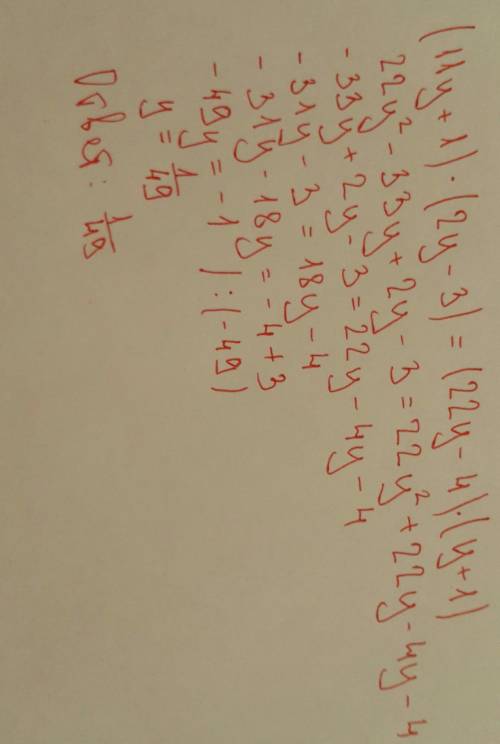 (11y + 1) · (2y - 3) = (22y - 4) · (y + 1)
22y² - 33y + 2y - 3 = 22y² + 22y - 4y - 4
- 33y + 2y - 3 = 22y - 4y - 4
- 31y - 3 = 18y - 4
- 31y - 18y = - 4 + 3
- 49y = - 1 | : (- 49)
y = 1/49
Ответ: 1/49